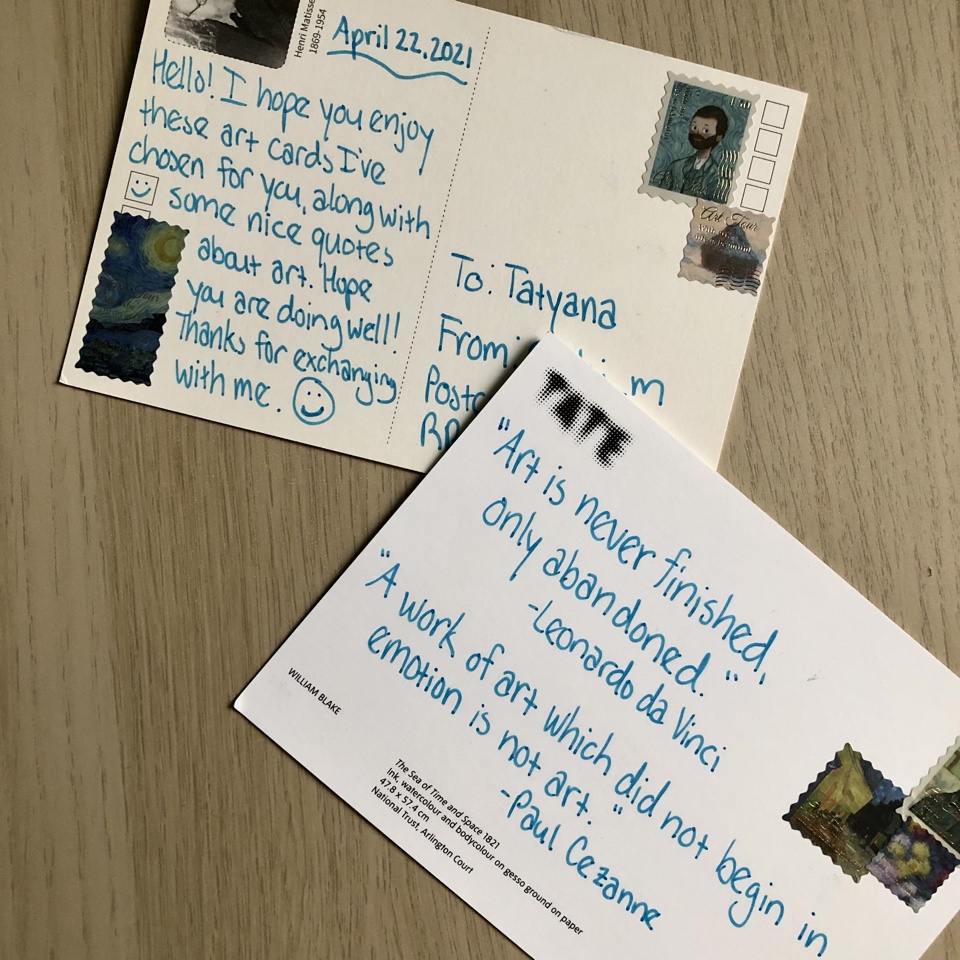 Henri Matisse
1869-1954
April 22, 2021
Hello! I hope you enjoy
these art cards I've
chosen for you, along with
some nice quotes
about art. Hope
you are doing well!
Thanks for exchanging
with me.
Art Tour
To: Tatyana
From
TATE
"Art is never finished,
only abandoned."
-Leonardo da Vinci
"A work of art which did not begin in
emotion is not art."
-Paul Cezanne
WILLIAM BLAKE
The Sea of Time and Space 1821
Ink, watercolour and bodycolour on gesso ground on paper
47.8 x 57.4 cm
National Trust, Arlington Court